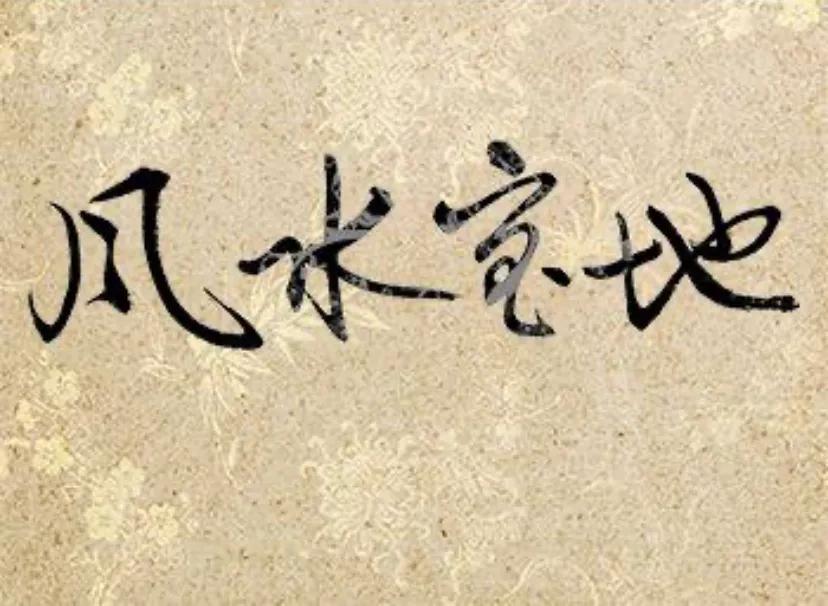 风水宝地